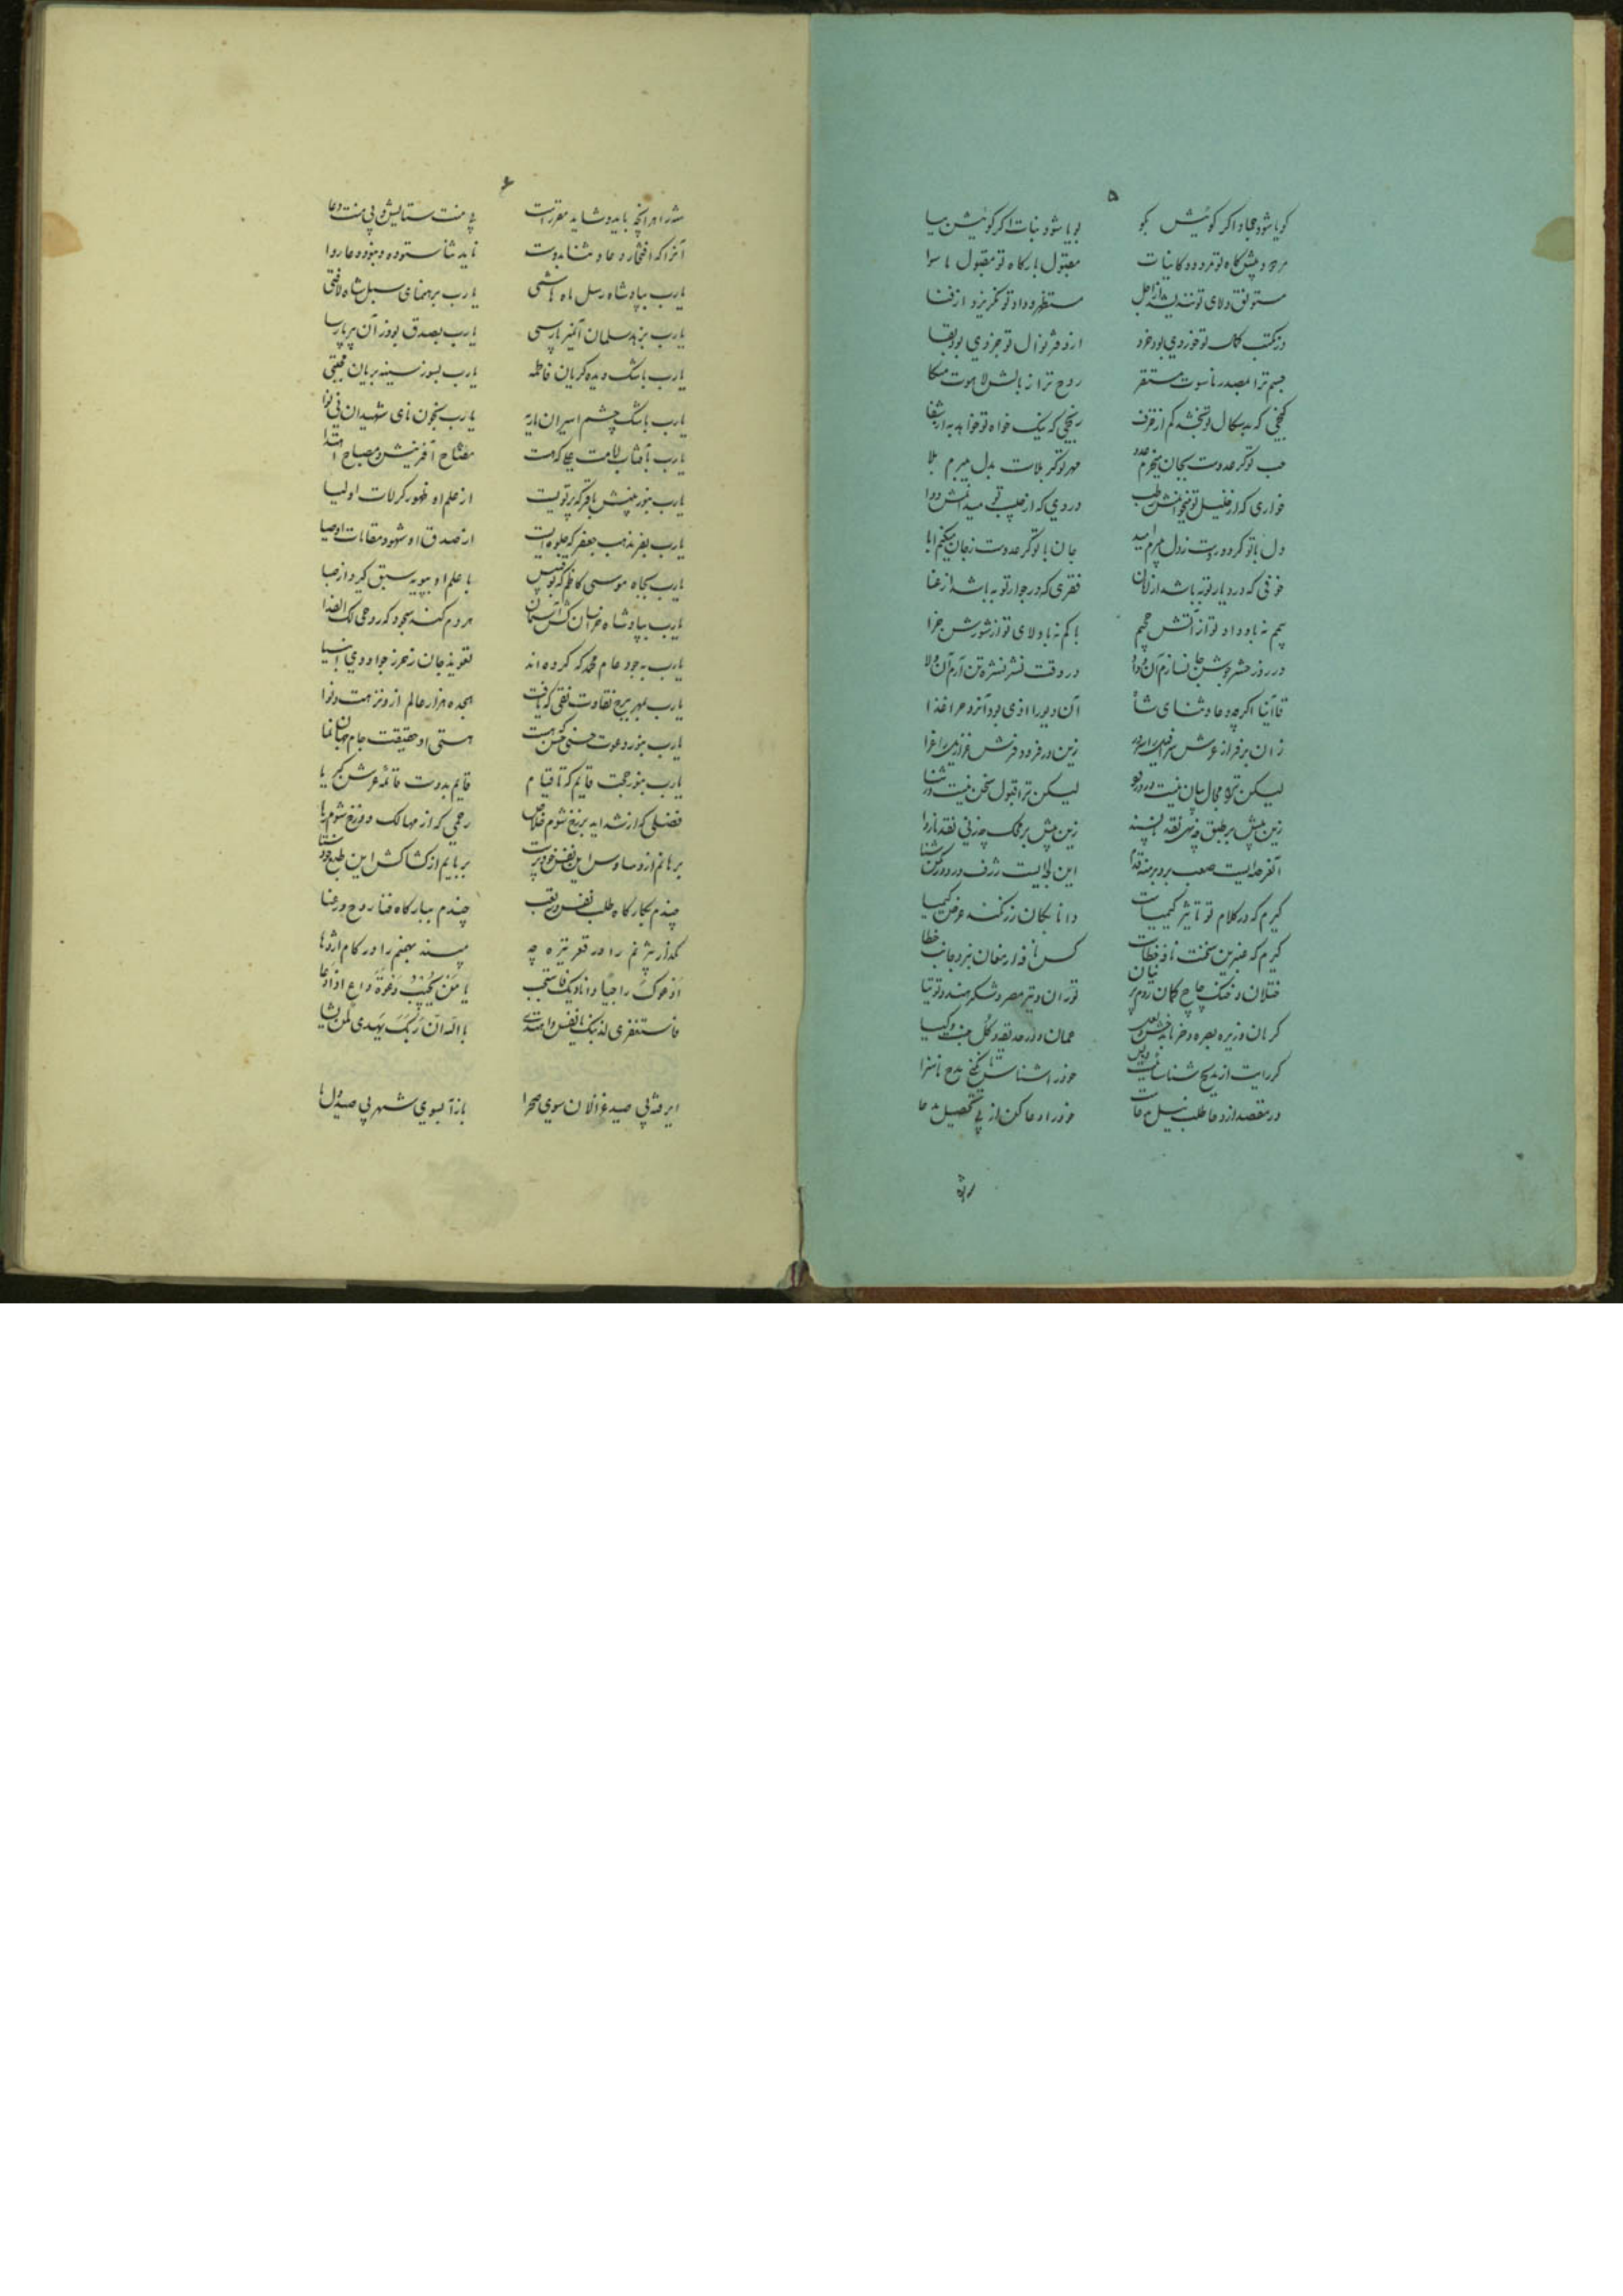 ۵
گویا شود جماد اگر گوئیش بگو پویا شود نبات اگر گوئیش بیا
مردود پیشگاه تو مردود کاینات مقبول بارگاه تو مقبول ماسوا
مستوثق ولای تو نندیشد از اجل مستظهر وداد تو نگریزد از فنا
در مکتب کمال تو خوردی بود خرد از دفتر نوال تو جزوی بود بقا
جسم ترا بمصدر ناسوت مستقر روح ترا ببالش لاهوت متکا
گنجی که بدسگال تو بخشد کم از خزف رنجی که نیک خواه تو خواهد به از شفا
حب تو گر عدوست بجان میخرم عدو مهر تو گر بلاست بدل میبرم بلا
خواری که از خلیل تو میخوانمش طب دردی که از حبیب تو میدانمش دوا
دل با تو گر دوروست ز دل میبرم امید جان با تو گر عدوست ز جان میکنم ابا
خوفی که در دیار تو به باشد از امان فقری که در جوار تو به باشد از غنا
بیم نه با وداد تو از آتش جحیم باکم نه با ولای تو از شورش جزا
در روز حشر جوشن جان سازم آن وداد در وقت نشر نشره تن آرم آن ولا
قاآنیا اگر چه دعا و ثنای شاه آن دیو را اذی بود آنروح را غذا
زان بر فراز عرش سرافیل را سرور زین در فرود فرش عزازیل را عزا
لیکن ترا مجال بیان نیست در درود لیکن ترا قبول سخن نیست در ثنا
زین بیش بر طبق چه نهی نقد ناپسند زین بیش بر محک چه زنی نقد ناروا
آن مرحله ایست صعب برو برمنه قدم این لجه ایست ژرف در او در مکن شنا
گیرم که در کلام تو تاثیر کیمیاست دانا بکان زر نکند عرض کیمیا
گیرم که عنبرین سخنت نافه خطاست کس نافه ارمغان نبرد جانب خطا
ختلان و خنگ چاچ و کمان روم و پرنیان توران و تیر مصر و شکر هند و توتیا
کرمان و زیره بصره و خرما بدخش و لعل عمان و در حدیقه و گل جنت و گیا
گر رایت از مدیح شناسائیست و بس خود را شناس تا نکنی مدح ناسزا
ور مقصد از دعا طلب نیل مدعاست خود را دعا کن از پی تحصیل مدعا
شه را
۶
شه را هر آنچه باید و شاید مقرر است بی منت ستایش و بی منت دعا
آنرا که افتخار دعا و ثنا بدوست ناید ثنا ستوده و نبود دعا روا
یارب بپادشاه رسل ماه هاشمی یارب برهنمای سبل شاه لافتی
یارب بزهد سلمان آن پیر پارسی یارب بصدق بوذر آن پیر پارسا
یارب باشک دیده گریان فاطمه یارب بسوز سینه بریان مجتبی
یارب باشک چشم اسیران ماریه یارب بخون نای شهیدان نینوا
یارب بآفتاب امامت علی که هست مفتاح آفرینش و مصباح اهتدا
یارب بنور بینش باقر که پرتویست از علم او ظهور کرامات اولیا
یارب بفر مذهب جعفر که جلوه ایست از صدق او شهود مقامات اوصیا
یارب بجاه موسی کاظم که بوقبیس با حلم او بپویه سبق گیرد از صبا
یارب بپادشاه خراسان کش آسمان هر دم کند سجود که روحی لک الفدا
یارب بجود عام محمد که کرده اند تعویذ جان ز حرز جواد وی انبیا
یارب بمهر برج نقاوت نقی که یافت هجده هزار عالم از او نزهت و نوا
یارب بنور دعوت حسن که هست هستی او حقیقت جام جهان نما
یارب بنور حجت قایم که تا قیام قایم بدوست قائمه عرش کبریا
فضلی که از شداید برزخ شوم خلاص رحمی که از مهالک دوزخ شوم رها
برهانم از وساوس این نفس خودپرست بربایم از کشاکش این طبع خودستا
چندم بکارگاه طلب نفس در تعب چندم ببارگاه فنا روح در عنا
مگذار بیژنم را در قعر تیره چه مپسند بهمنم را در کام اژدها
ادعوک راجیا و انادیک فاستجب یا من یجیب دعوة داع اذا دعا
فاستغفری لذنبک یا نفس و اهتدی بالله ان ربک یهدی لمن یشا
ای رفته پی صید غزالان سوی صحرا باز آ بسوی شهر پی صید دل ما